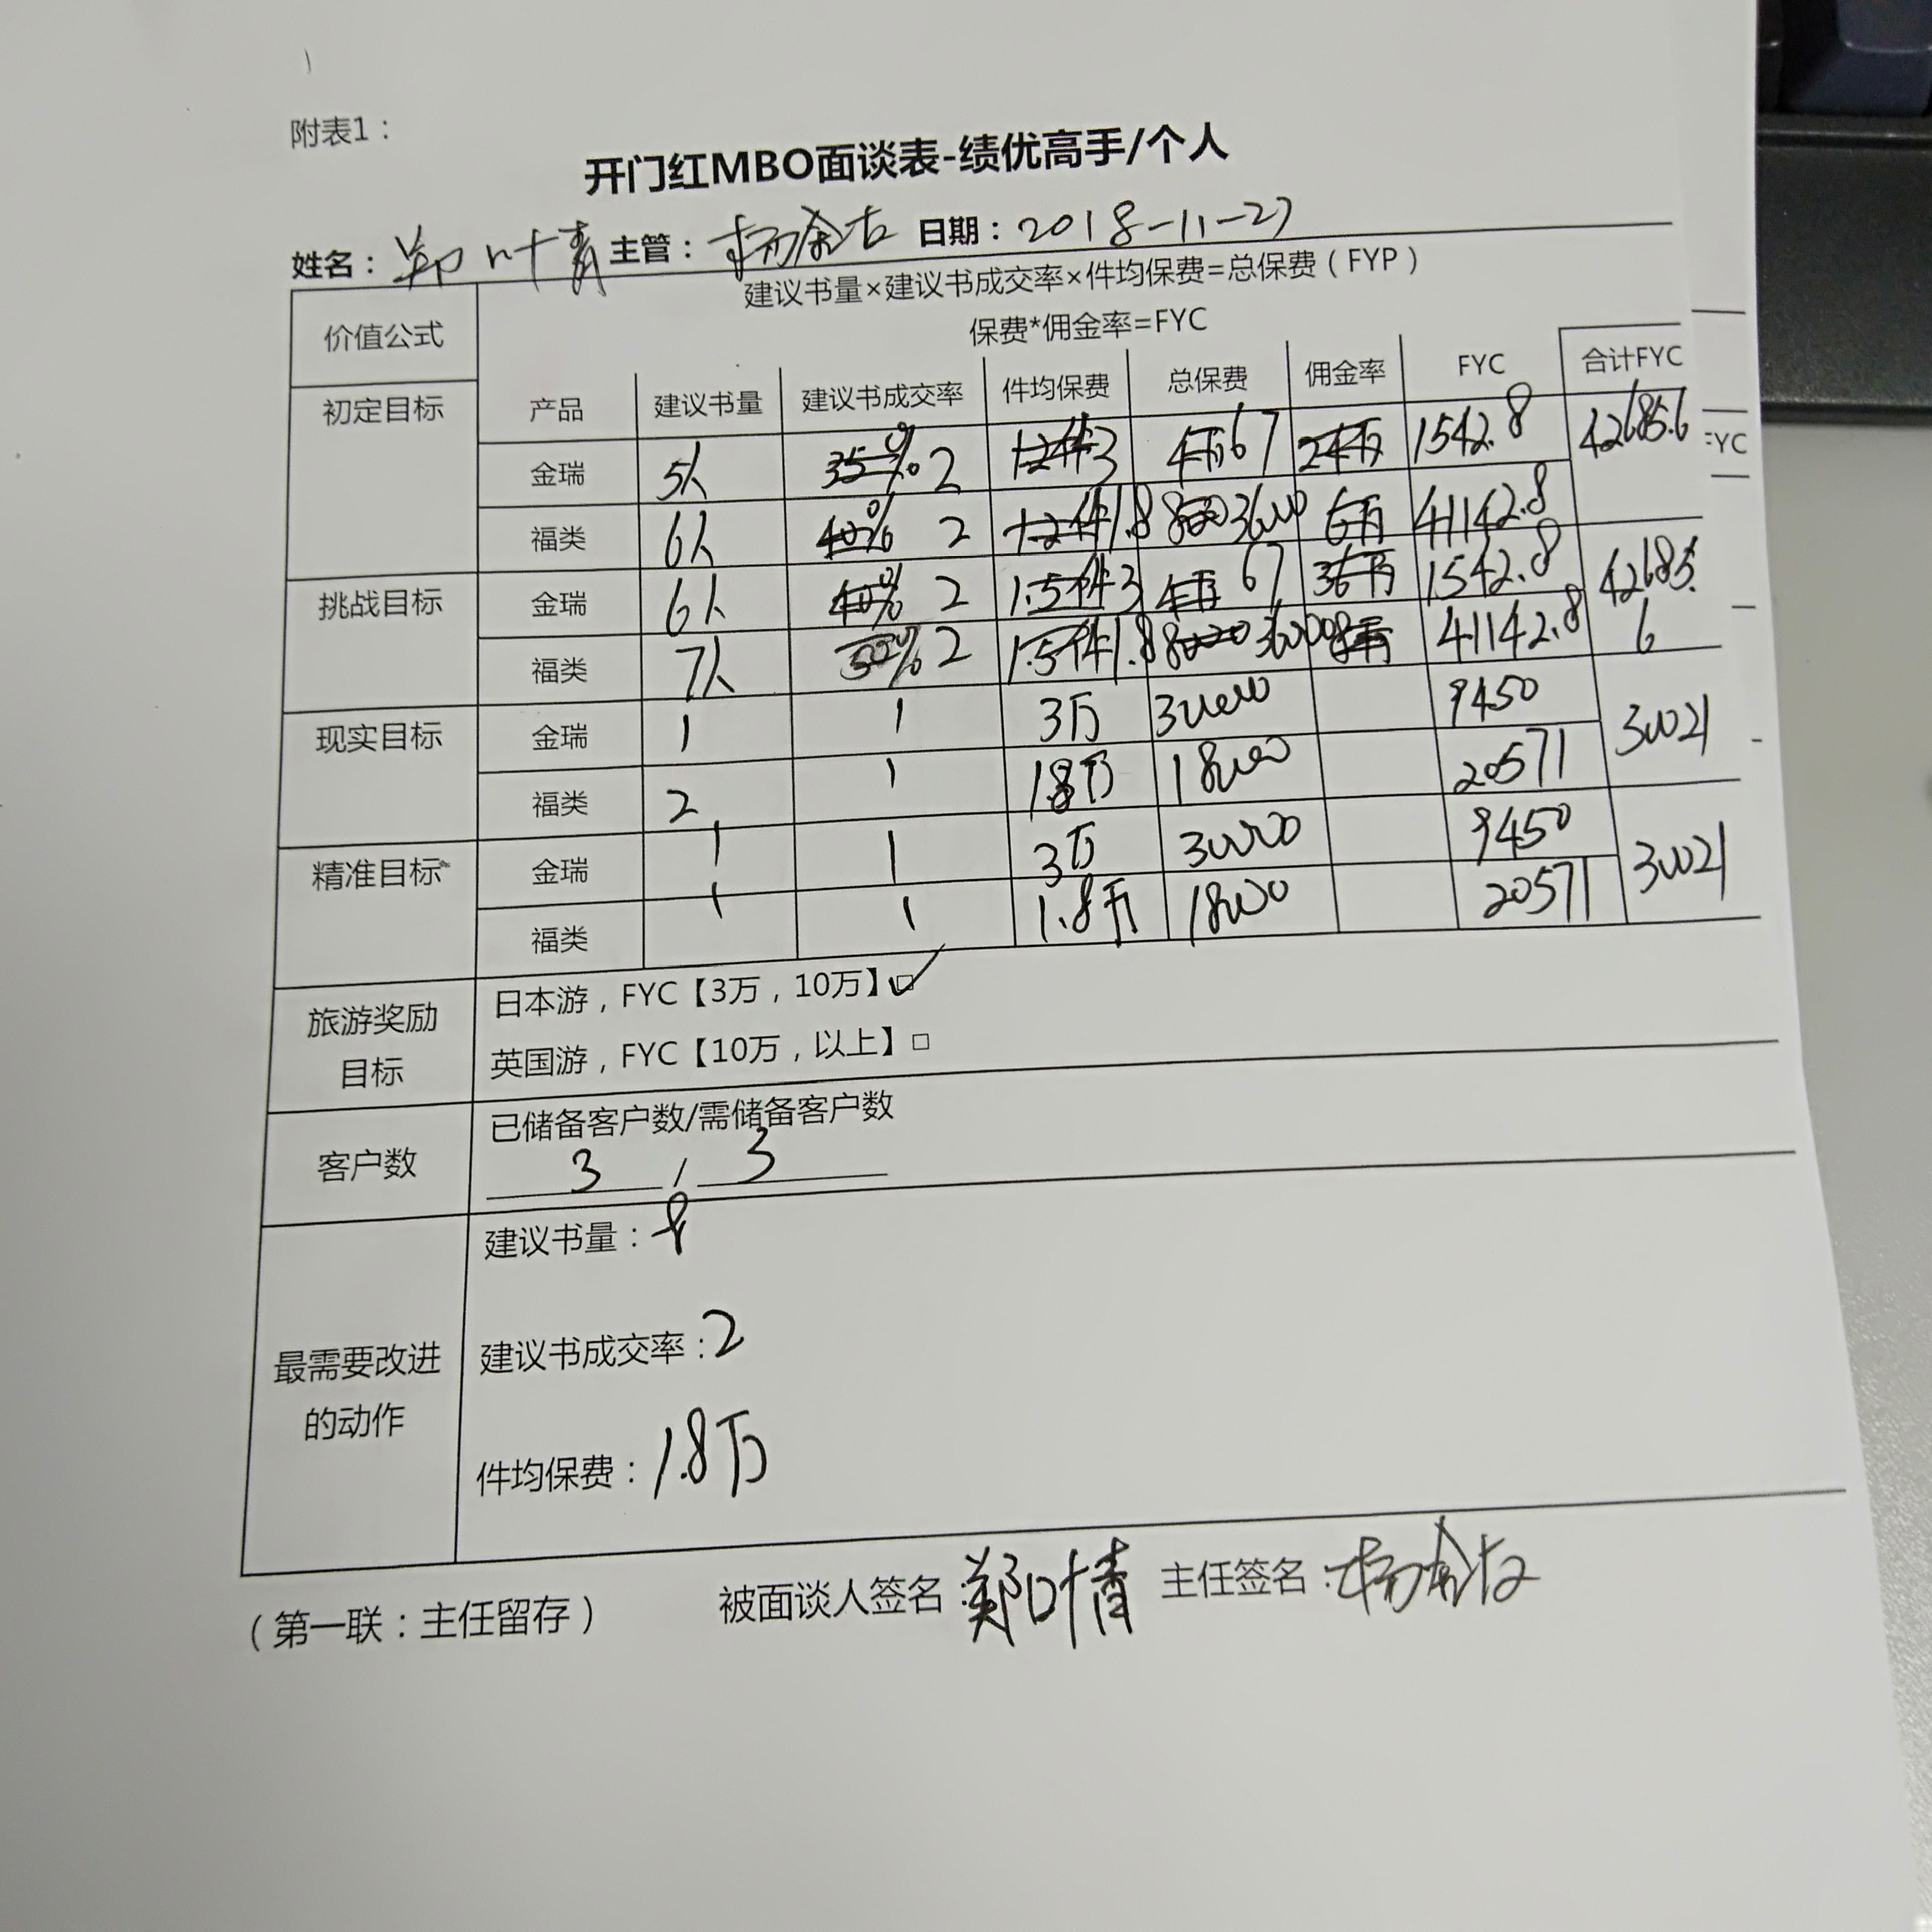 附表1：
开门红MBO面谈表-绩优高手/个人
姓名：郑叶青 主管： 日期：2018-11-27
价值公式 建议书量×建议书成交率×件均保费=总保费（FYP）
保费*佣金率=FYC
初定目标 产品 建议书量 建议书成交率 件均保费 总保费 佣金率 FYC 合计FYC
金瑞 5人 35% 2 3 4万 67 24万 1542.8 42685.6
福类 6人 40% 2 1.8 36000 6万 41142.8
挑战目标 金瑞 6人 40% 2 1.5件 3 4万 67 36万 1542.8 42685.6
福类 7人 2 1.5件 1.8 36000 41142.8
现实目标 金瑞 1 1 3万 30000 9450 30021
福类 2 1 1.8万 18000 20571
精准目标 金瑞 1 1 3万 30000 9450 30021
福类 1 1 1.8万 18000 20571
FYC
旅游奖励目标 日本游，FYC【3万，10万】☑
英国游，FYC【10万，以上】□
客户数 已储备客户数/需储备客户数
3 / 3
最需要改进的动作 建议书量：
建议书成交率：2
件均保费：1.8万
（第一联：主任留存） 被面谈人签名：郑叶青 主任签名：